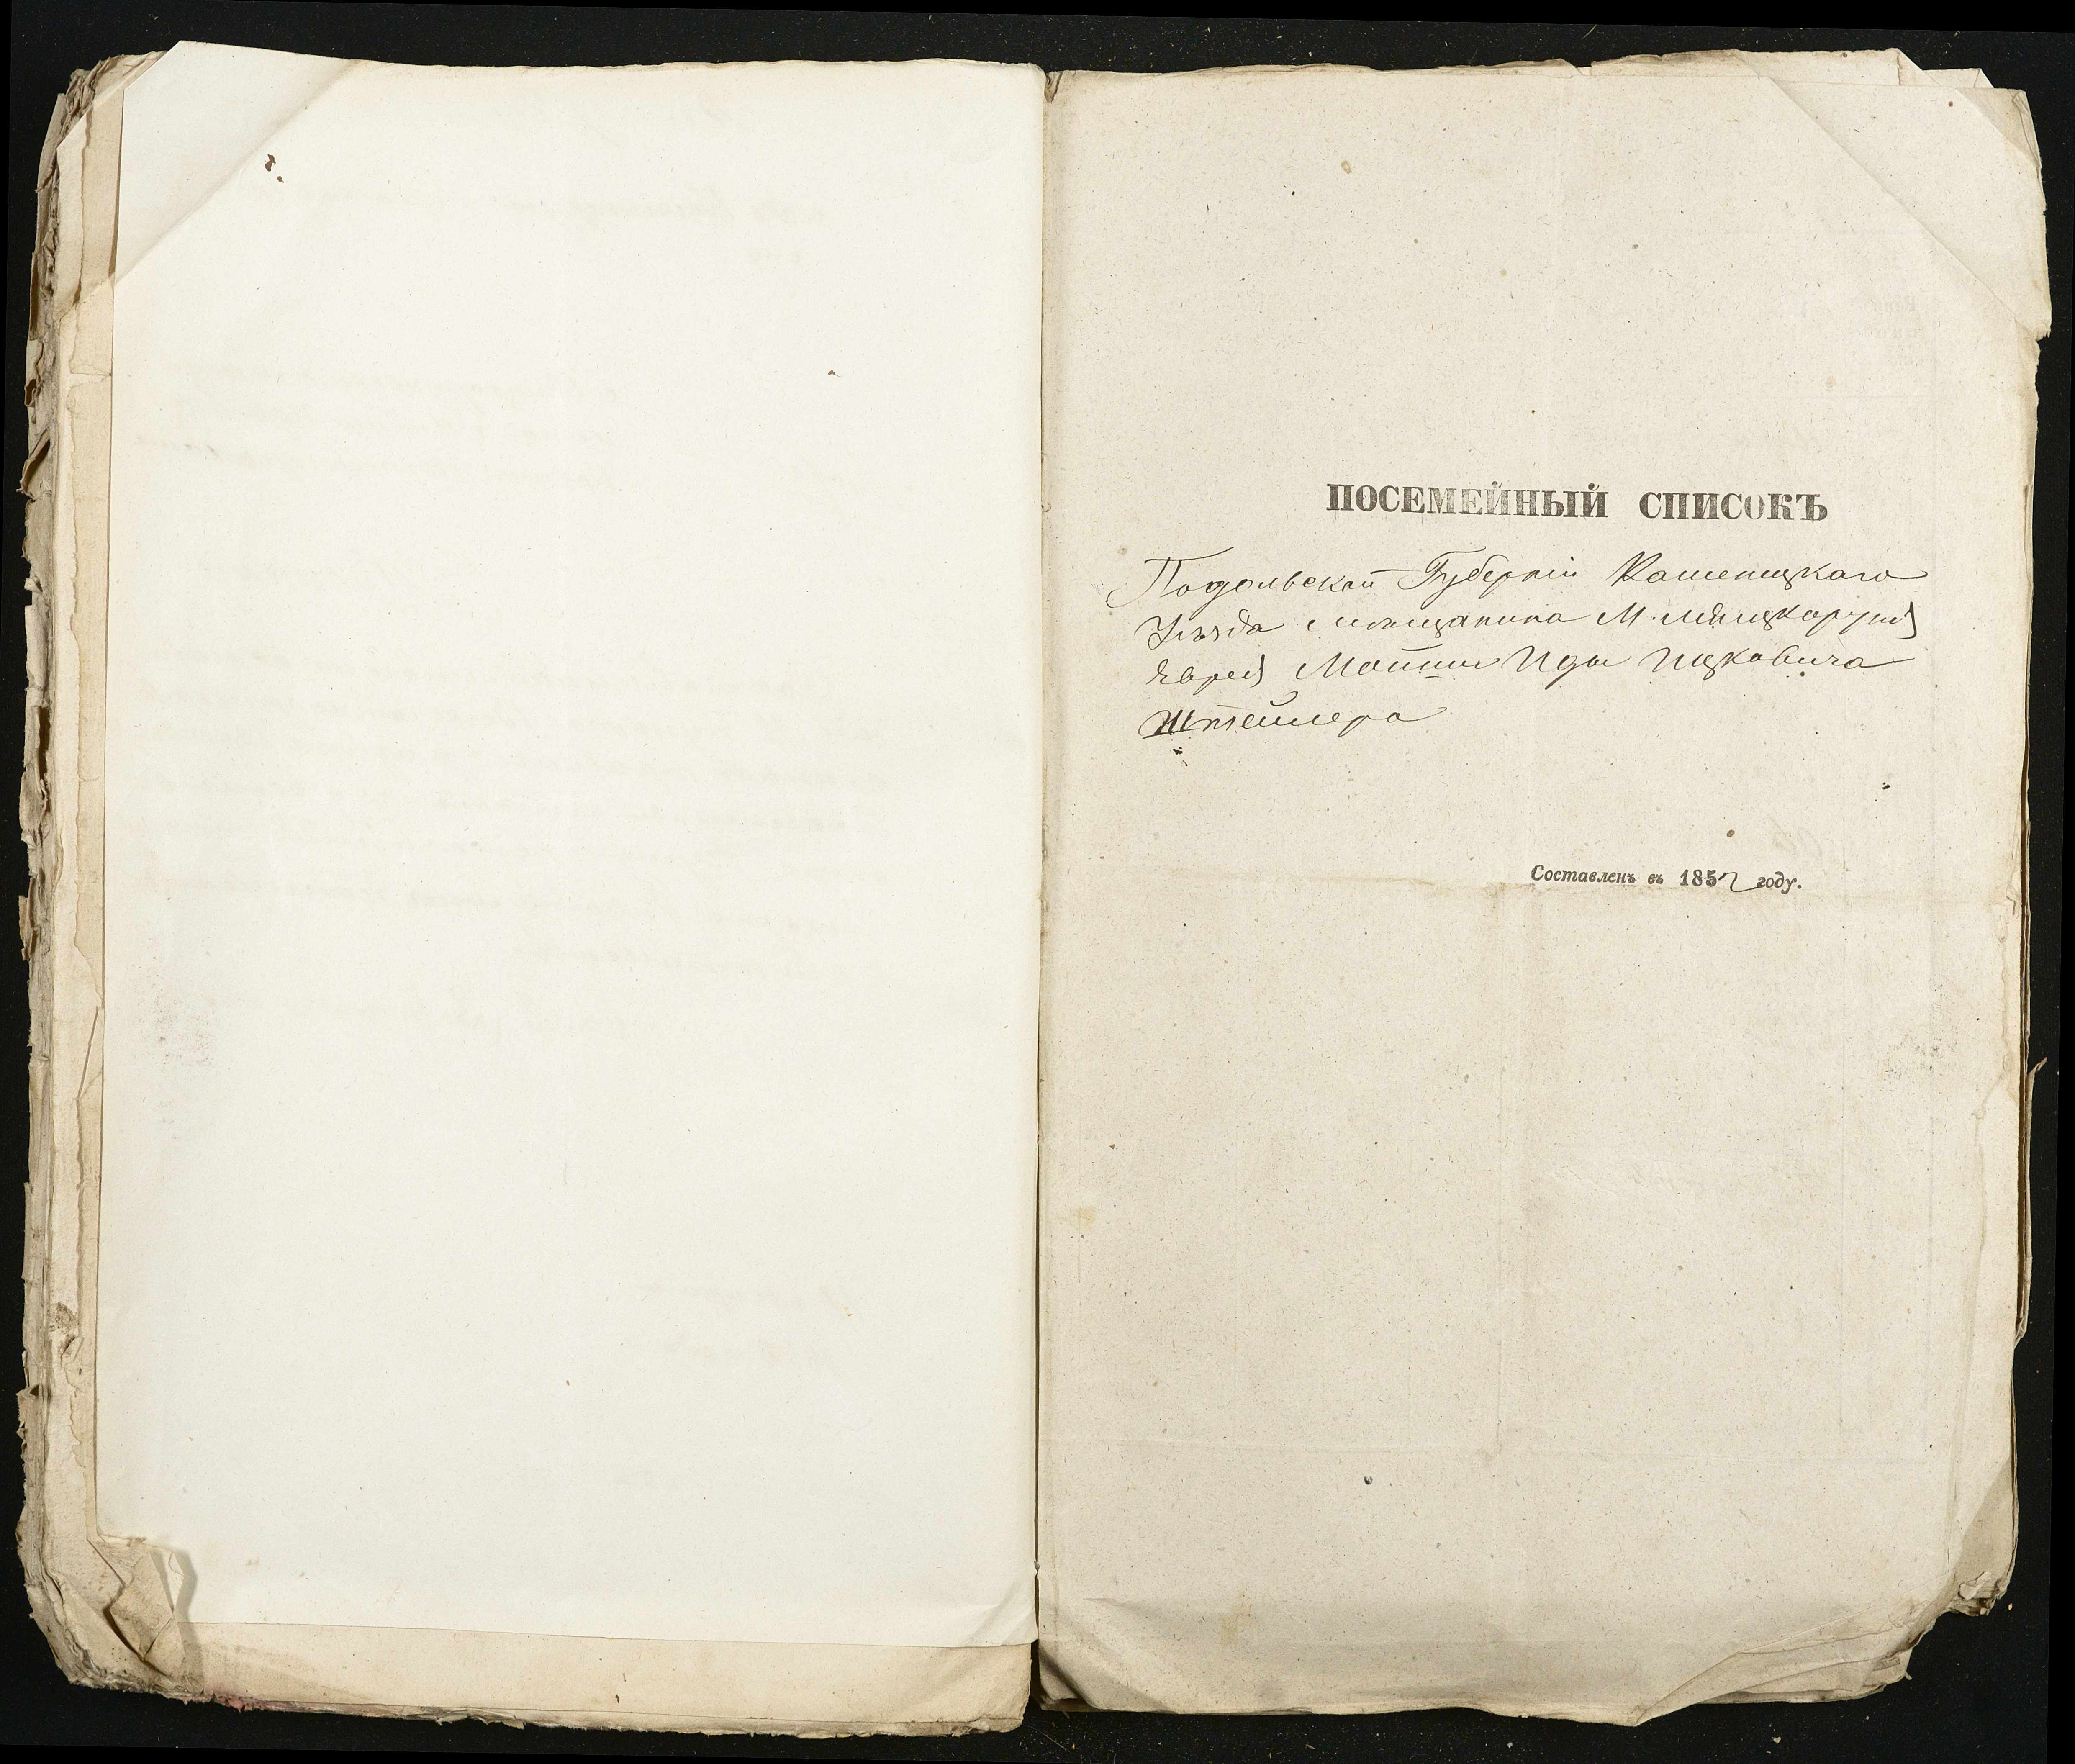 ПОСЕМЕЙНЫЙ СПИСОКЪ
Подольской Губерніи Каменецкаго
Уѣзда мѣщанина М.
Еврея Мошки Иды Ицковича
Штейлера
Составленъ въ 1857 году.